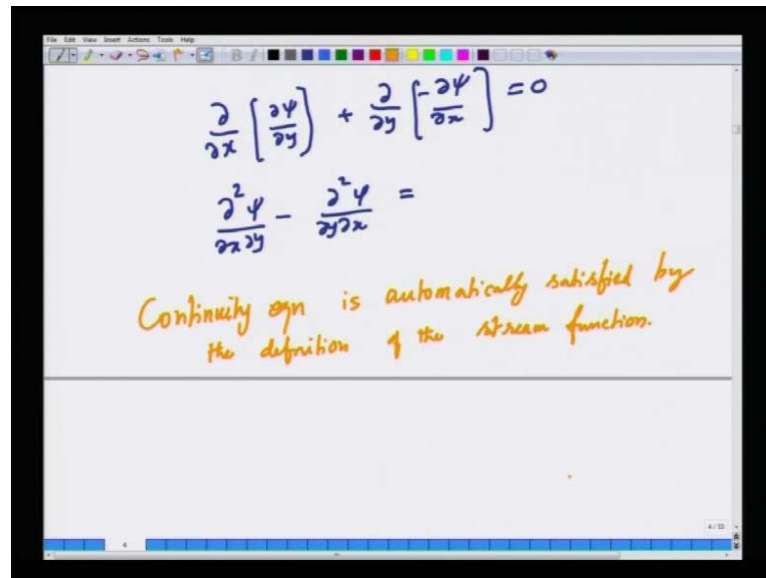 File Edit View Insert Actions Tools Help
∂/∂x [∂ψ/∂y] + ∂/∂y [-∂ψ/∂x] = 0
∂²ψ/∂x∂y - ∂²ψ/∂y∂x =
Continuity eqn is automatically satisfied by
the definition of the stream function.
4/33
4